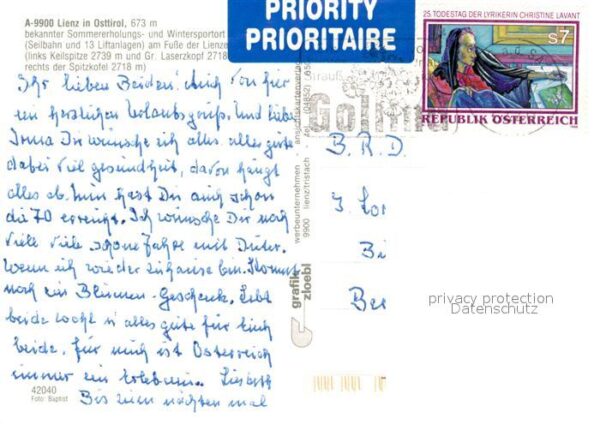 A-9900 Lienz in Osttirol, 673 m
bekannter Sommererholungs- und Wintersportort
(Seilbahn und 13 Liftanlagen) am Fuße der Lienze
(links Keilspitze 2739 m und Gr. Laserzkopf 2718
rechts der Spitzkofel 2718 m)
PRIORITY
PRIORITAIRE
25. TODESTAG DER LYRIKERIN CHRISTINE LAVANT
S 7
REPUBLIK ÖSTERREICH
Ihr lieben Beiden! Auch von hier
einen herzlichen Urlaubsgruß. Und liebe
Irma Dir wünsche ich alles alles gute
dabei viel gesundheit, davon hängt
alles ab. Nun hast Du auch schon
die 70 erreicht. Ich wünsche Dir noch
viele viele schöne Jahre mit Dieter.
Wenn ich wieder zuhause bin. Kommt
noch ein Blumen-Geschenk. Lebt
beide wohl u alles gute für Euch
beide, für mich ist Österreich
immer ein Erlebnis. Lisbeth
Bis zum nächten mal
B.R.D.
werbeunternehmen ansichtskartenverlag
9900 lienz/tristach
grafik
zloebl
42040
Foto: Baptist
privacy protection
Datenschutz